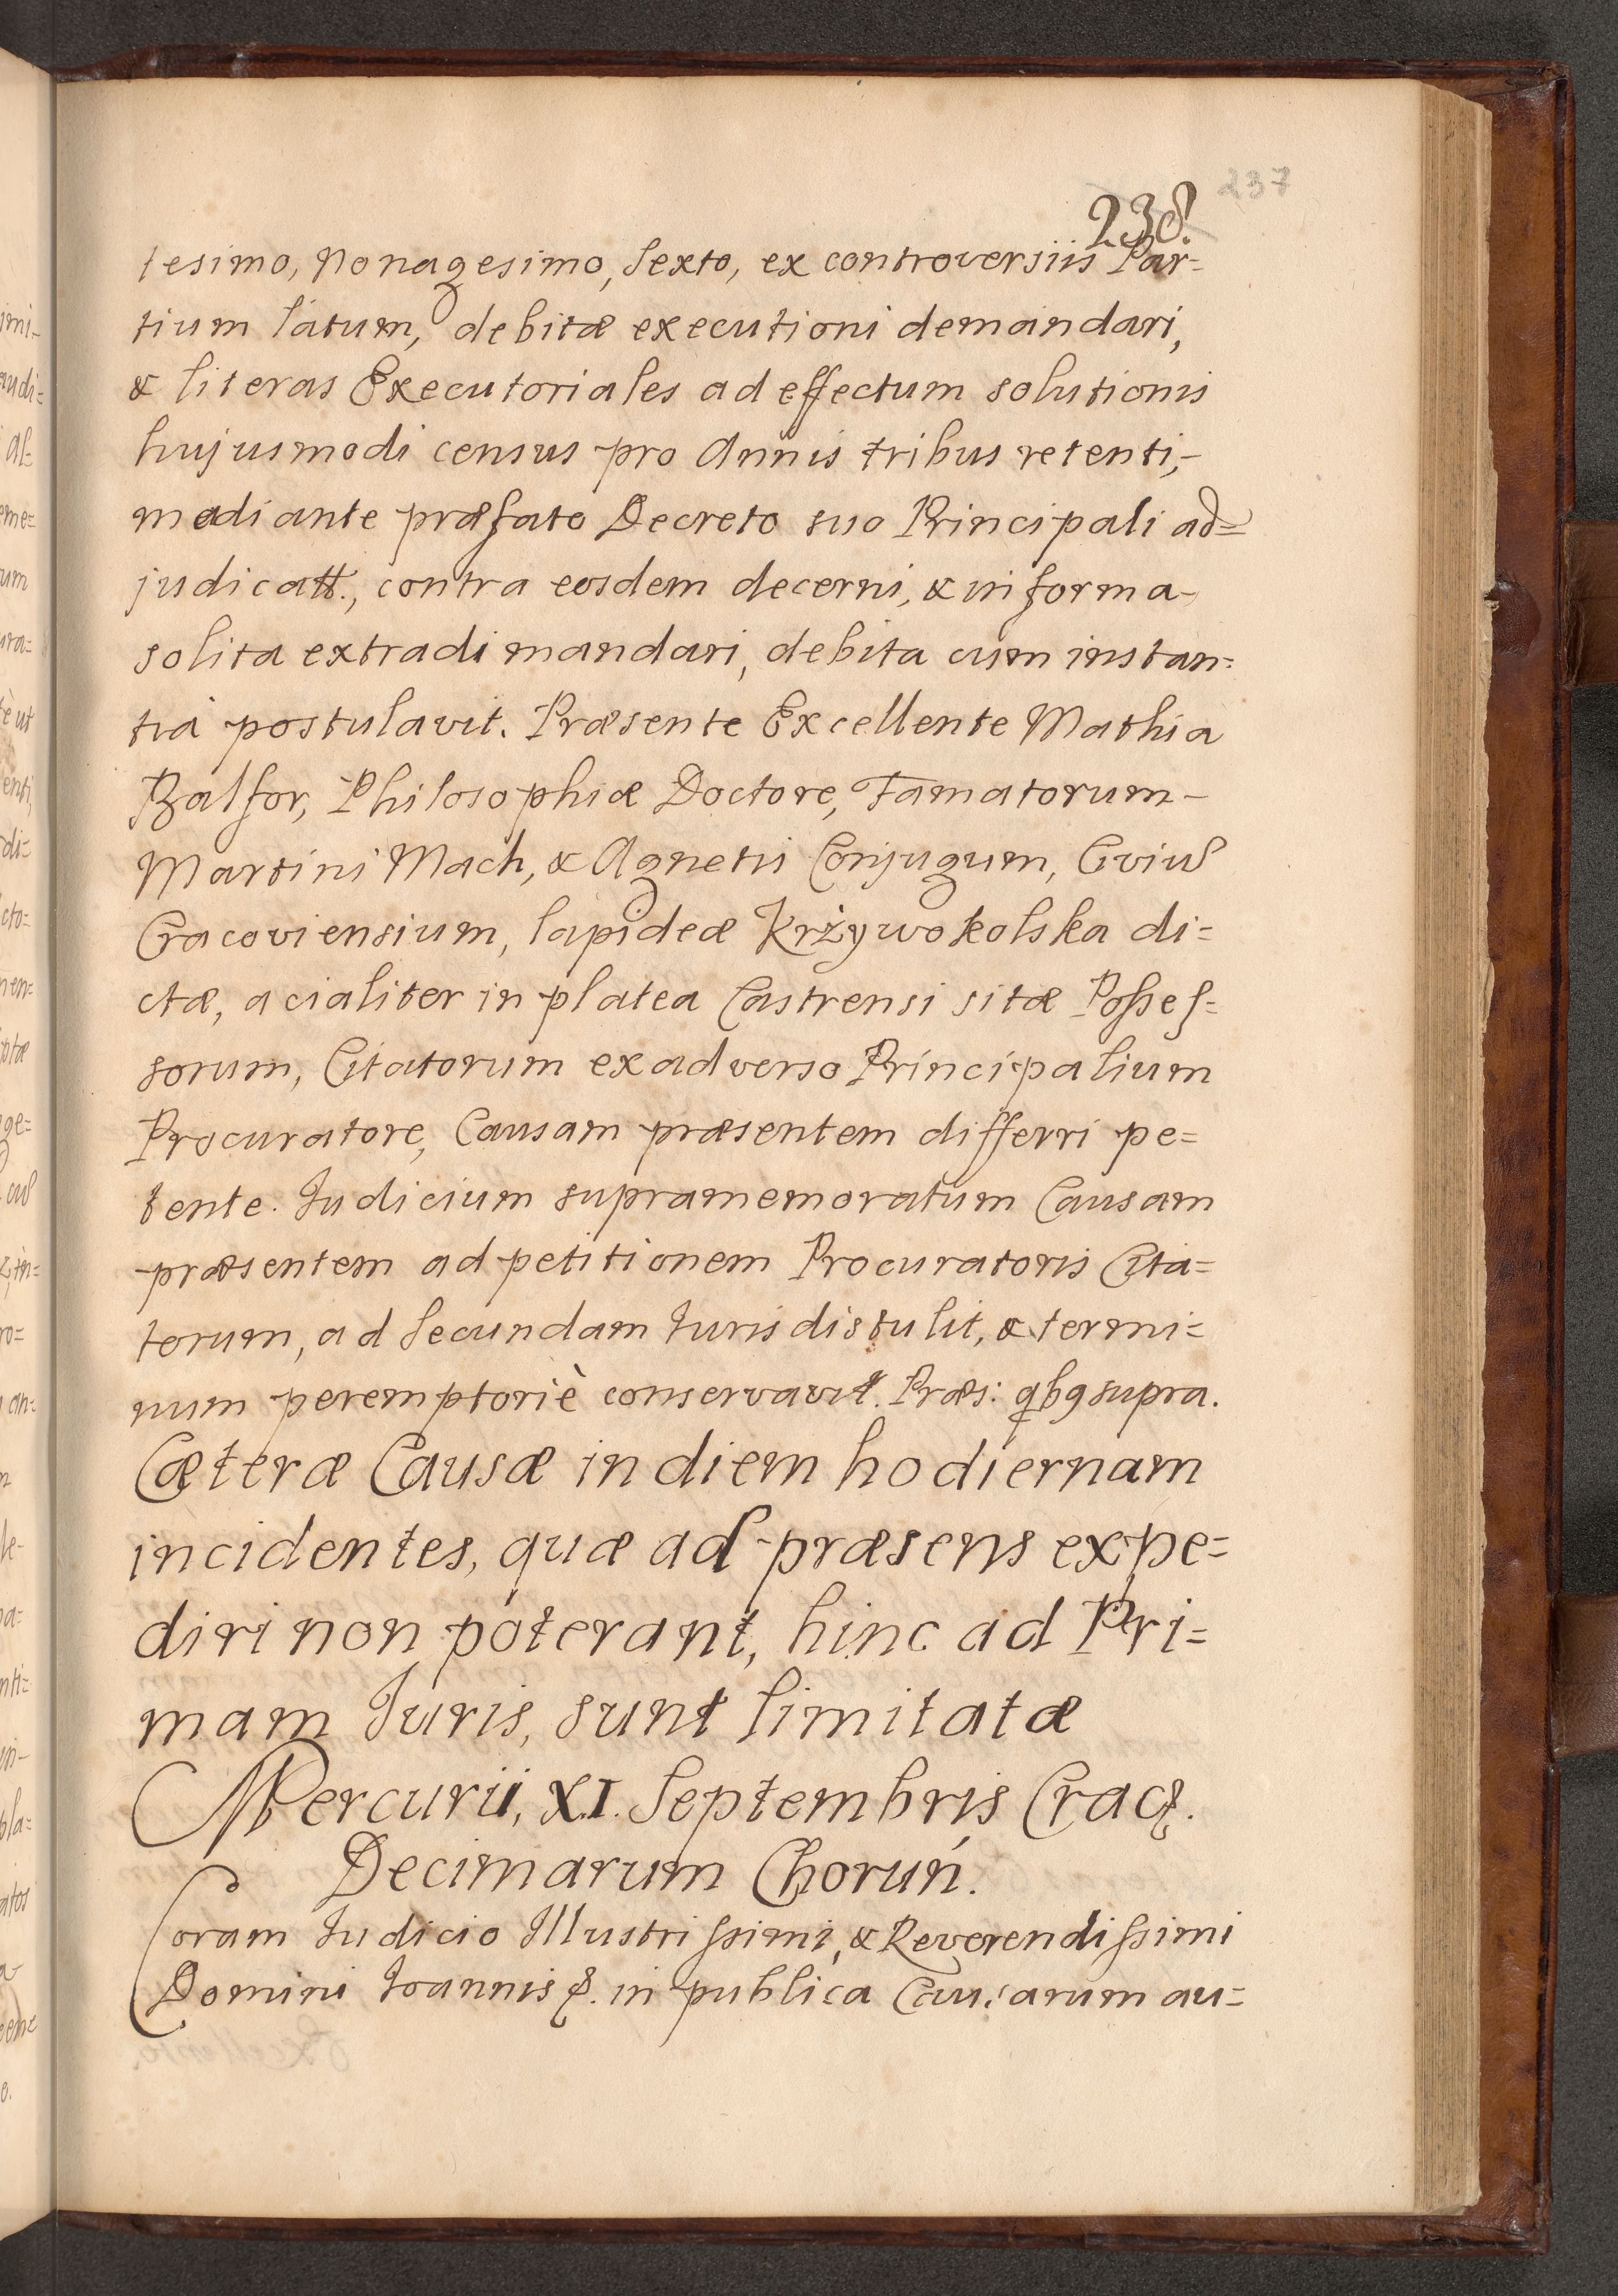 237
238.
tesimo, Nonagesimo, Sexto, ex controversiis Par=
tium latum, debitæ executioni demandari,
& literas Executoriales ad effectum solutionis
hujusmodi census pro Annis tribus retenti,-
mediante præfato Decreto suo Principali ad=
judicatt., contra eosdem decerni, & in forma-
solita extradi mandari, debita cum instan=
tia postulavit. Præsente Excellente Mathia
Balfor, Philosophiæ Doctore, Famatorum-
Martini Mach, & Agnetis Conjugum, Civiū
Cracoviensium, lapideæ Krżywokolska di=
ctæ, acialiter in platea Castrensi sitæ Posses=
sorum, Citatorum ex adverso Principalium
Procuratore, Causam præsentem differri pe=
tente. Judicium supramemoratum Causam
præsentem ad petitionem Procuratoris Cita=
torum, ad Secundam Juris distulit, & termi=
num peremptoriè conservavit. Præs: qbg supra.
Cæteræ Causæ in diem hodiernam
incidentes, quæ ad præsens expe=
diri non poterant, hinc ad Pri=
mam Juris, sunt limitatæ
Mercurii, XI. Septembris Crac.
Decimarum Choruń.
Coram Judicio Illustrissimi, & Reverendissimi
Domini Joannis &. in publica Causarum au=